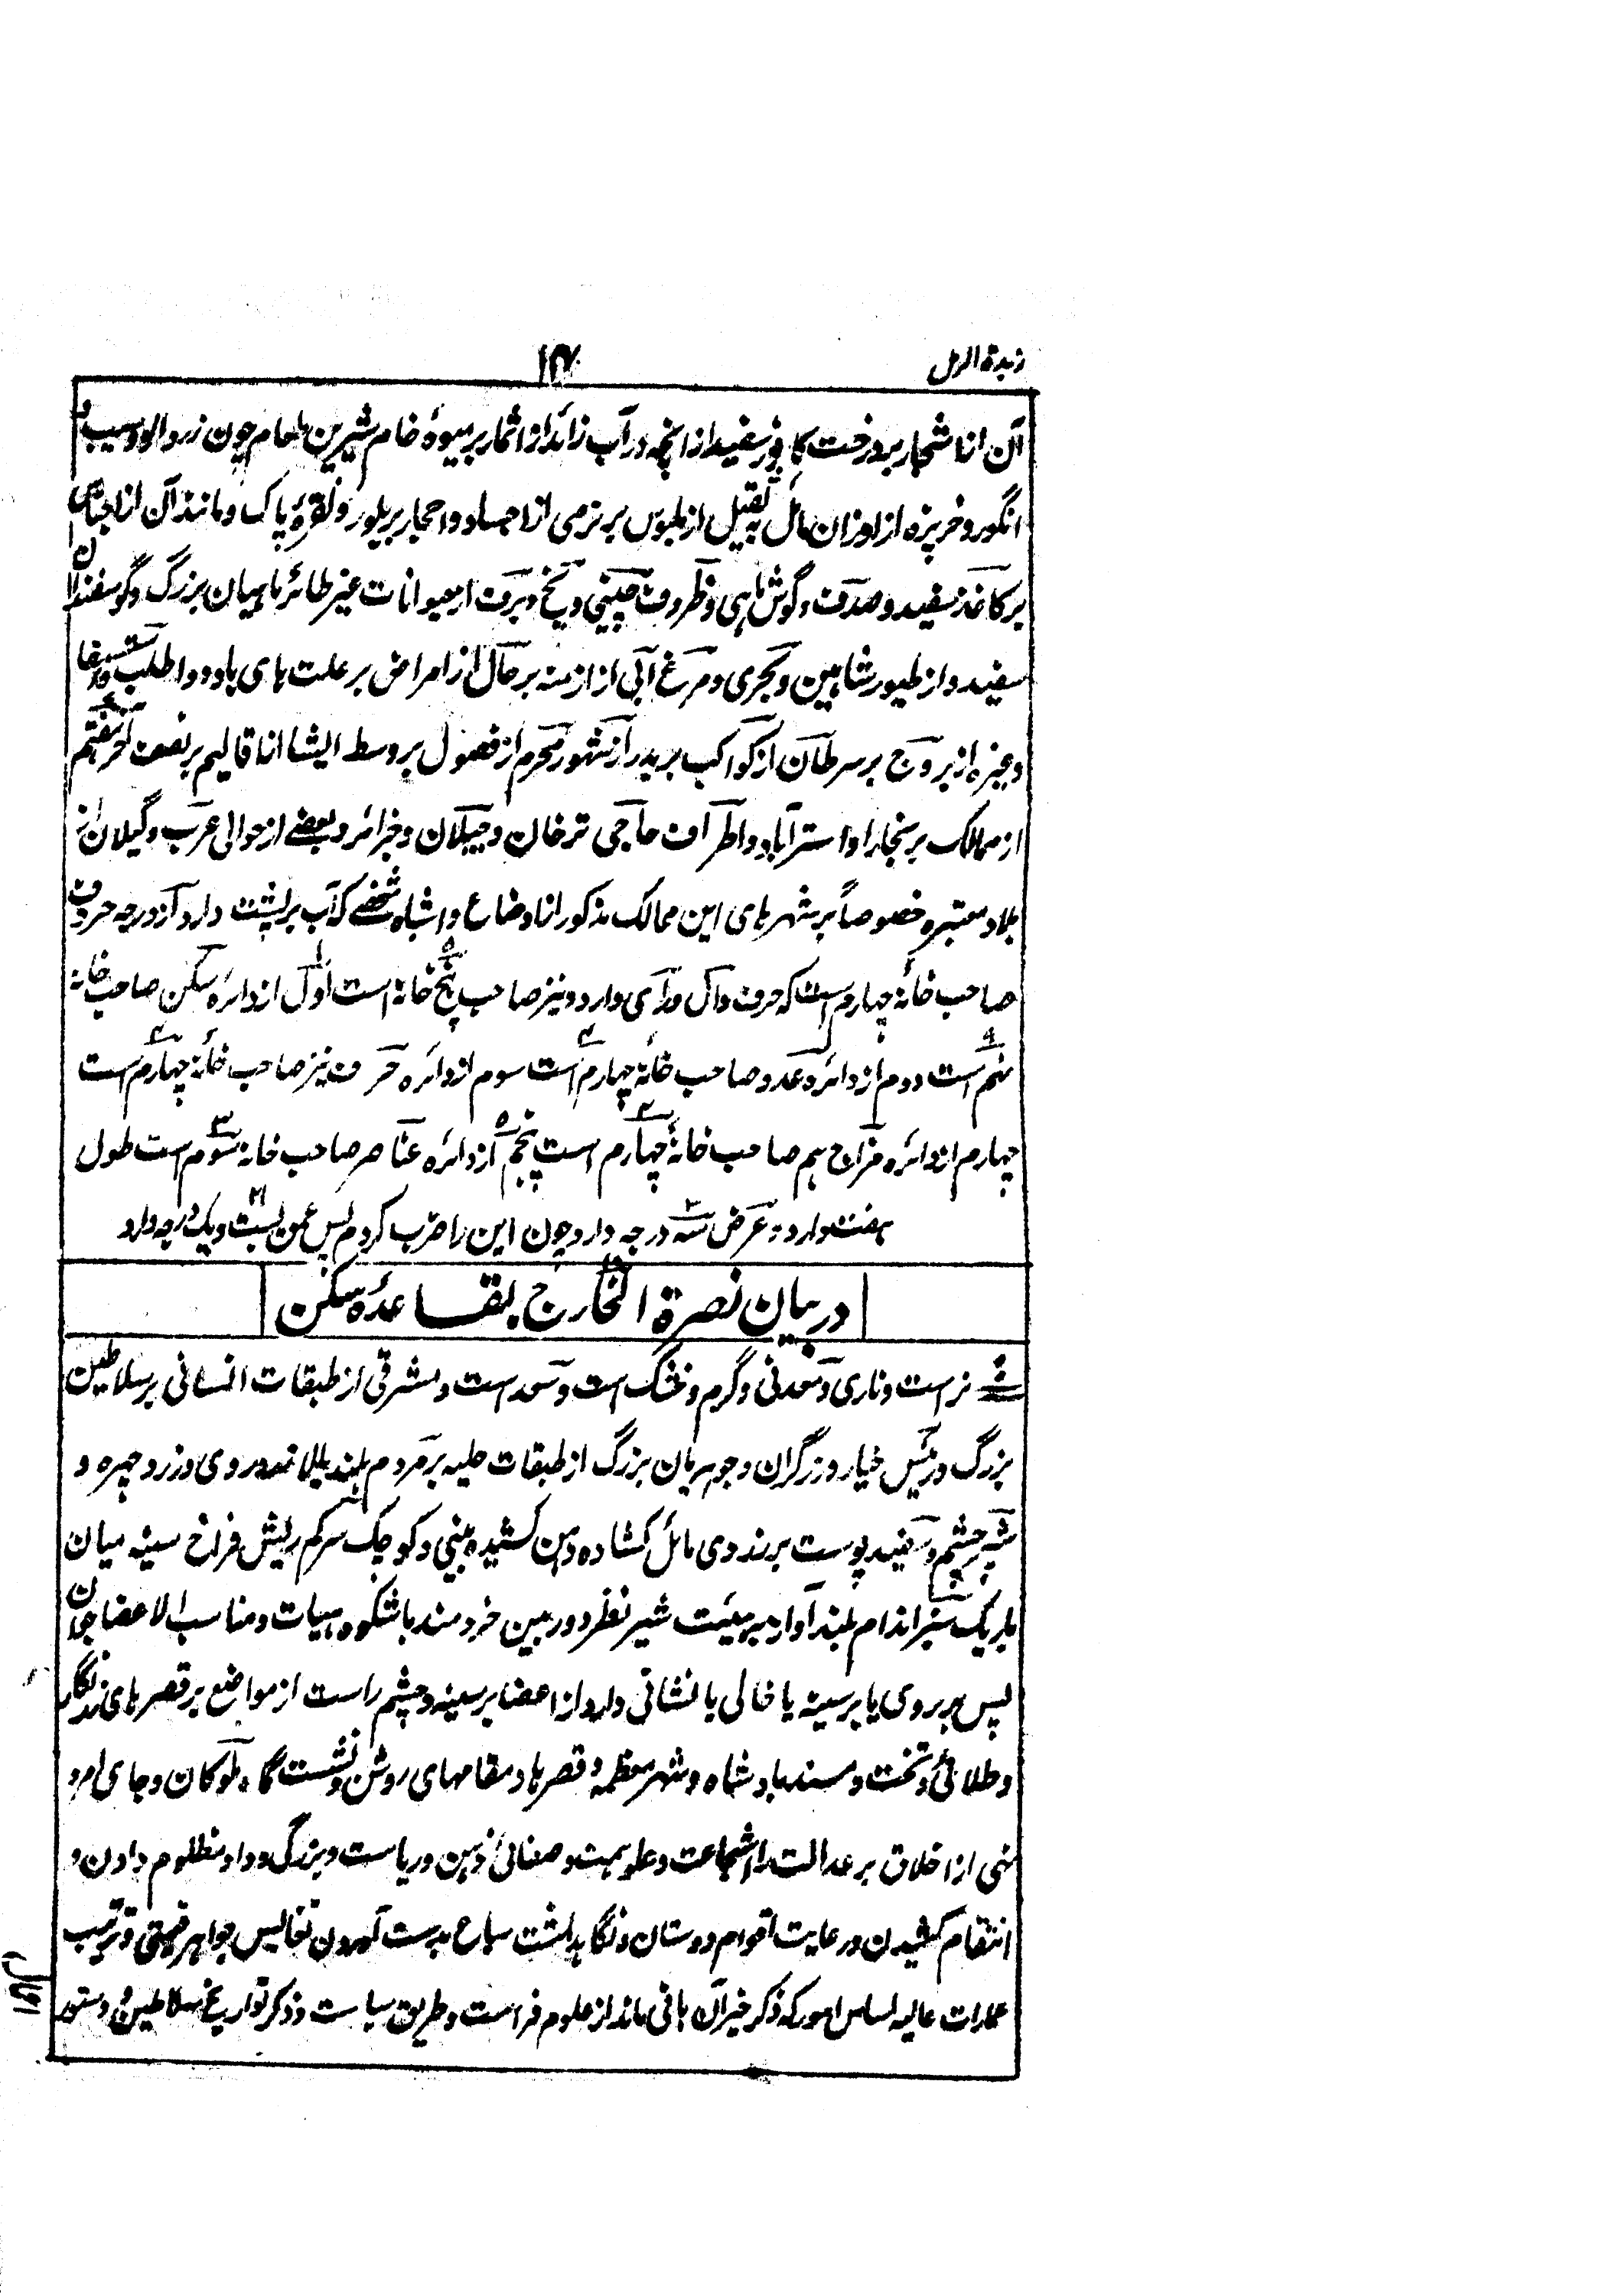 زبدة الرمل
۱۲۷
آن از اشجار بر درخت کافور سفید از انچه در آب زائد از اثمار بر میوهٔ خام شیرین طعام چون زردالو و سیب و
انگور و خرپزه از اوزان مائل به ثقیل از ملبوس بر نرمی از اجساد و احجار بر بلور و نقرهٔ پاک و مانند آن از اجناس
بر کاغذ سفید و صدف و گوش ماهی و ظروف چینی و یخ و برف از حیوانات غیر طائر ماهیان بزرگ و گوسفندان
سفید و از طیور شاهین و بحری و مرغ آبی از ازمنه بر حال از امراض بر علت های باد و داء الثعلب و استسقا
وغیره از بروج بر سرطان از کواکب بر بدر از شهور محرم از فصول بر وسط ایشا از اقالیم بر نصف آخر هفتم
از ممالک بر بخارا و استرآباد و اطراف حاجی ترخان و جیلان و جزائر و بعضے از حوالی عرب و گیلان از
بلاد معتبره خصوصاً بر شهرهای این ممالک مذکور از اوضاع و اشباه شخصے که آب بر پشت دارد از درجه حروف
صاحب خانهٔ چهارم است که حرف دال و رای دارد و نیز صاحب پنج خانه است اول از دائره سکن صاحب خانه
نهم است دوم از دائره عدد صاحب خانهٔ چهارم است سوم از دائره حرف نیز صاحب خانهٔ چهارم است
چهارم از دائره مزاج هم صاحب خانهٔ چهارم است پنجم از دائره عناصر صاحب خانه سوم است طول
هفت دارد و عرض سه درجه دارد چون این را ضرب کردم پس عمق بست و یک درجه دارد
در بیان نصرة الخارج بقاعدهٔ سکن
نر است و ناری و معدنی و گرم و خشک است و سعد است و مشرقی از طبقات انسانی بر سلاطین
بزرگ و رئیس خیار و زرگران و جوهریان بزرگ از طبقات حلیه بر مردم بلند بالا مدور روی و زرد چهره و
شه چشم و سفید پوست بر زردی مائل کشاده دهن کشیده بینی و کوچک سر کم ریش فراخ سینه میان
باریک سبز اندام بلند آواز بر هیئت شیر نظر دوربین خردمند باشکوه هیات و مناسب الاعضا جوان
پس بر روی یا بر سینه یا خالی یا نشانی دارد از اعضا بر سینه و چشم راست از مواضع بر قصرهای زرنگار
و طلائی و تخت و مسند بادشاه و شهر معظمه و قصرها و مقامهای روشن و نشست گاه ملوکان و جای امر و
نهی از اخلاق بر عدالت را شجاعت و علو همت و صفائی ذهن و ریاست و بزرگی و داد مظلوم دادن و
انتقام کشیدن و رعایت اقوام دوستان و نگاهداشت سباع بدست آمدن نفائیس جواهر قیمتی و ترتیب
عمارات عالیه اساس امور که ذکر خیر آن باقی ماند از علوم فراست و طریق سیاست و ذکر تواریخ سلاطین و دستور